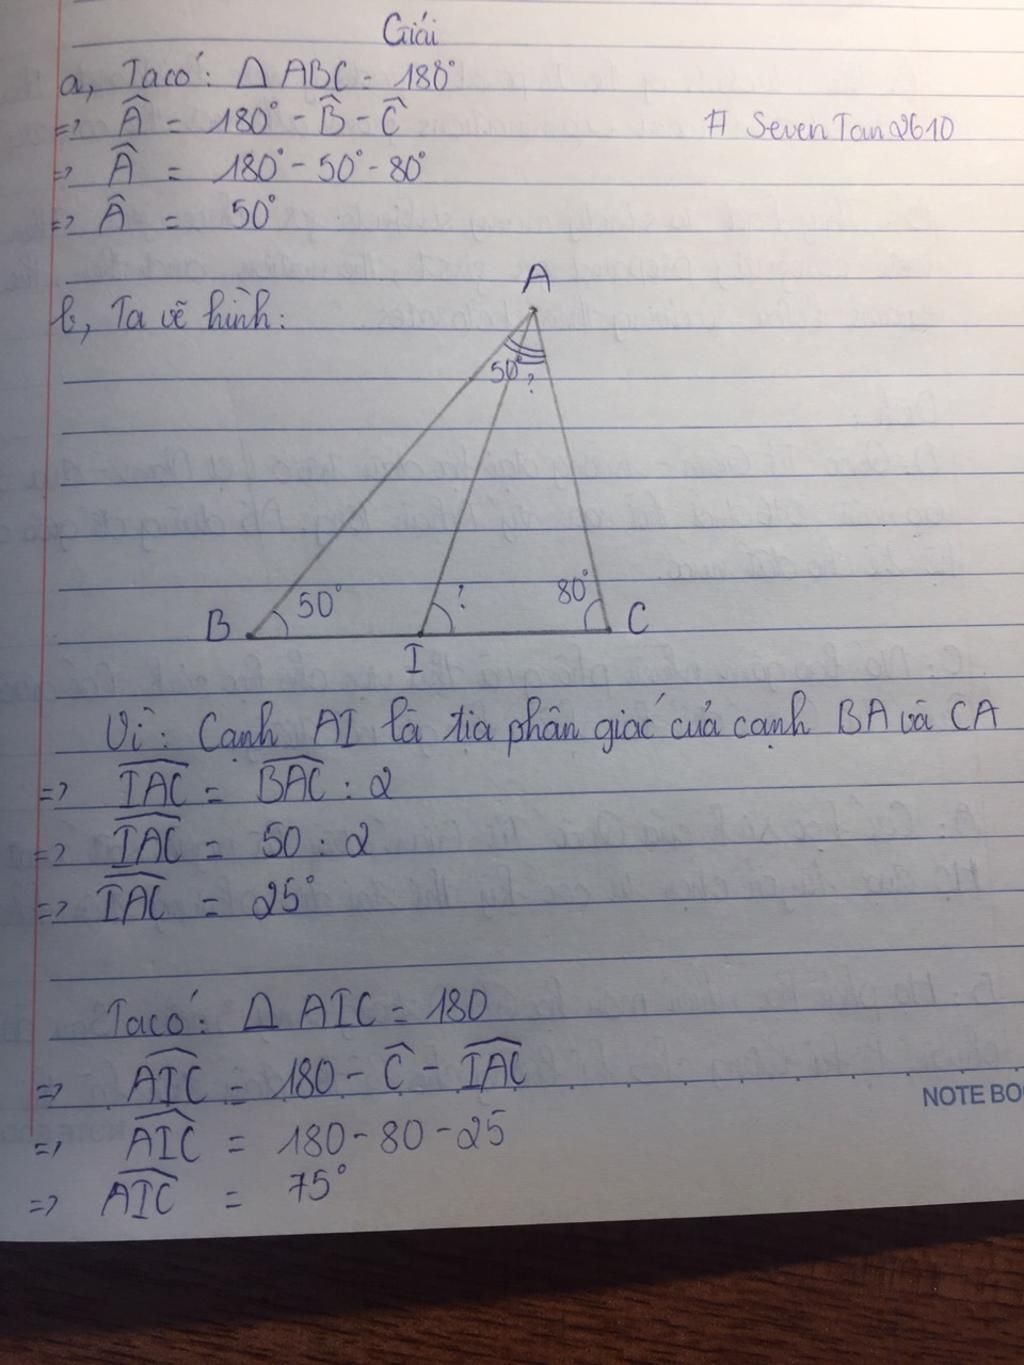 Giải
a, Ta có: Δ ABC = 180°
=> Â = 180° - B̂ - Ĉ
# SevenTan2610
=> Â = 180° - 50° - 80°
=> Â = 50°
b, Ta vẽ hình:
A
50°
?
B
50°
?
80°
C
I
Vì: Cạnh AI là tia phân giác của cạnh BA và CA
=> \widehat{IAC} = \widehat{BAC} : 2
=> \widehat{IAC} = 50 : 2
=> \widehat{IAC} = 25°
Ta có: Δ AIC = 180
=> \widehat{AIC} = 180 - Ĉ - \widehat{IAC}
NOTE BO
=> \widehat{AIC} = 180 - 80 - 25
=> \widehat{AIC} = 75°